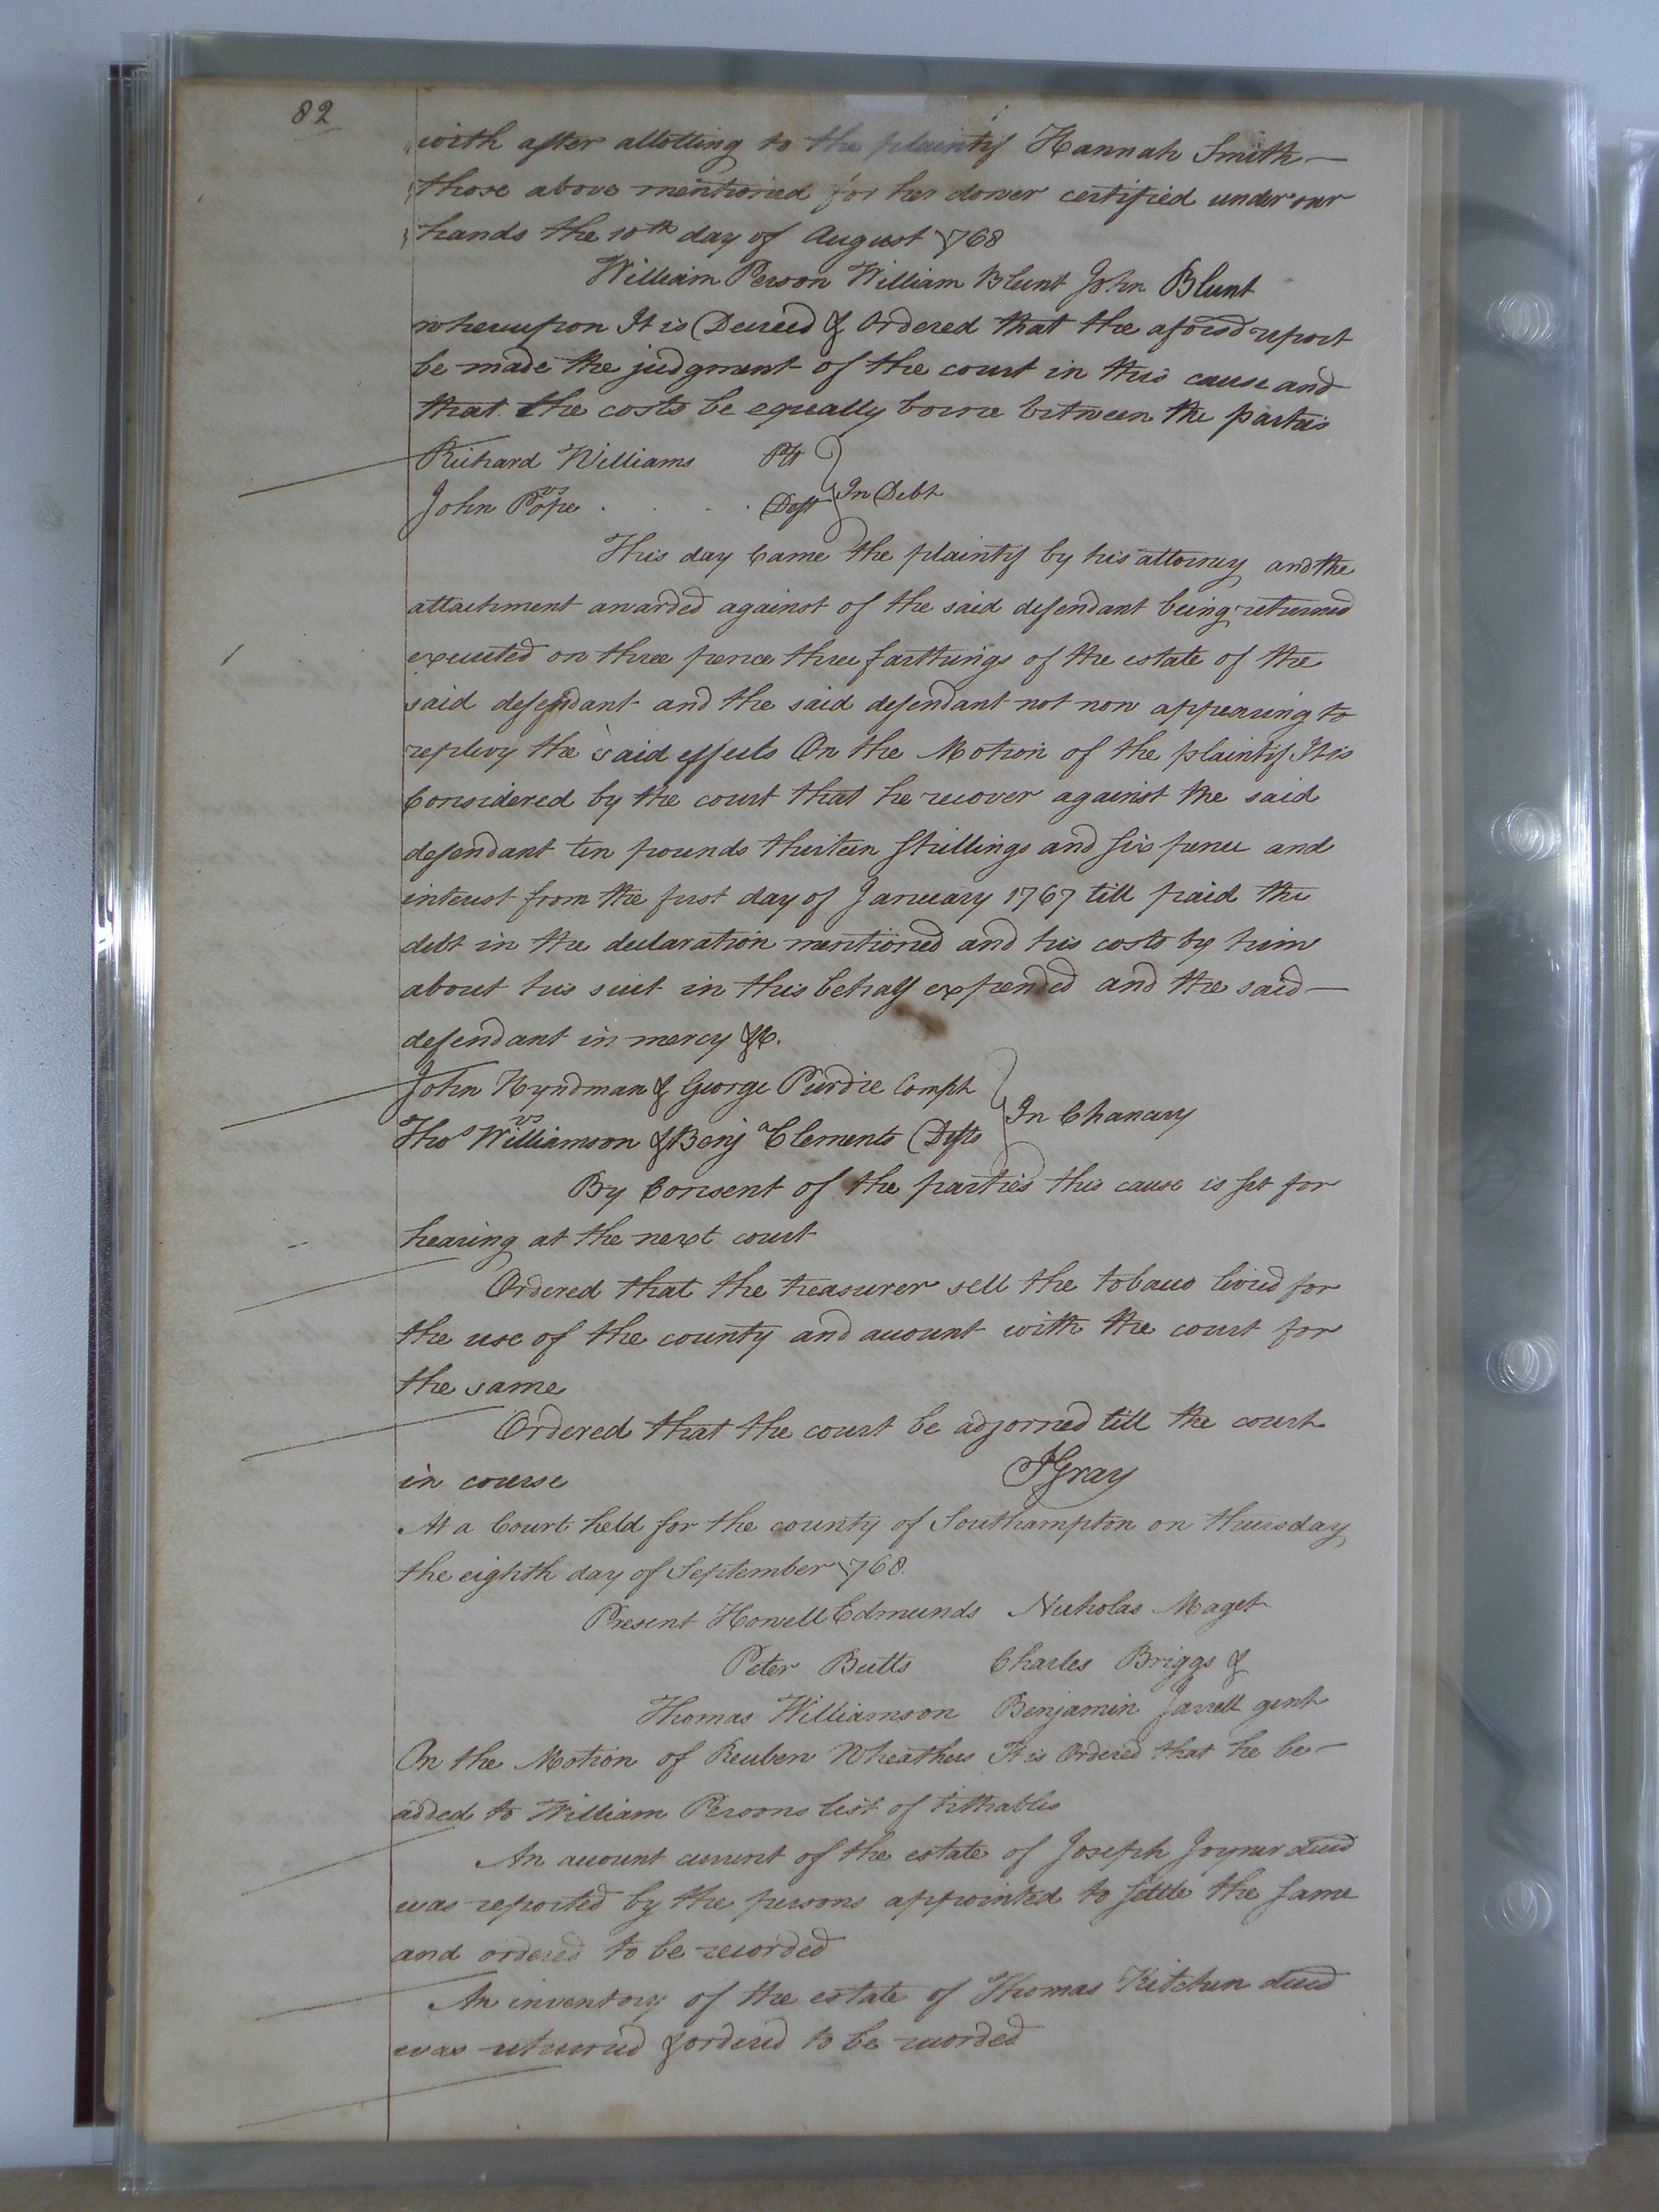 82
with after allotting to the plaintif Hannah Smith
those above mentioned for her dower certified under our
hands the 10th day of August 1768
William Person William Blunt John Blunt
whereupon It is Decreed & Ordered that the aforesd report
be made the judgment of the court in this cause and
that the costs be equally borne between the parties
Richard Williams Plt
vs } In Debt
John Pope . . . . Deft
This day Came the plaintif by his attorney and the
attachment awarded against of the said defendant being returned
executed on three pence three farthings of the estate of the
said defendant and the said defendant not now appearing to
replevy the said effects On the Motion of the plaintif It is
Considered by the court that he recover against the said
defendant ten pounds thirteen Shillings and six pence and
interest from the first day of January 1767 till paid the
debt in the declaration mentioned and his costs by him
about his suit in this behalf expended and the said
defendant in mercy &c.
John Hyndman & George Purdie Complt
vs } In Chancery
Thos Williamson & Benja Clements Defts
By Consent of the parties this cause is set for
hearing at the next court
Ordered that the treasurer sell the tobacco levied for
the use of the county and account with the court for
the same
Ordered that the court be adjorned till the court
in course JGray
At a Court held for the county of Southampton on thursday
the eighth day of September 1768.
Present Howell Edmunds Nicholas Maget
Peter Butts Charles Briggs &
Thomas Williamson Benjamin Jarrell gent
On the Motion of Reuben Wheathers It is Ordered that he be
added to William Persons list of tithables
An account current of the estate of Joseph Joyner decd
was reported by the persons appointed to settle the same
and ordered to be recorded
An inventory of the estate of Thomas Kitchen decd
was returned & ordered to be recorded